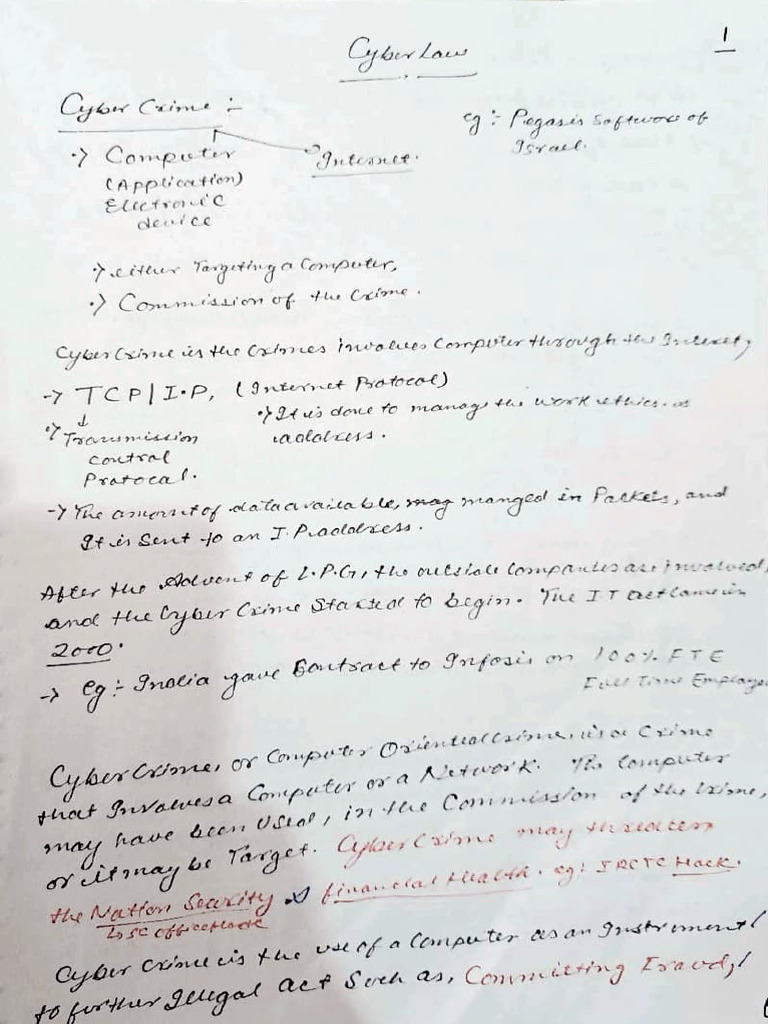 1
Cyber Law
Cyber Crime :-
eg :- Pegasis Software of
Israel.
·> Computer
(Application)
Electronic
device
Internet.
·> either Targeting a Computer,
·> Commission of the Crime.
Cyber Crime is the Crimes involves Computer through the Internet,
-> TCP/I.P, (Internet Protocol)
·> It is done to manage the work ethics.
address.
·> Transmission
control
Protocal.
-> The amount of data available, manged in Packets, and
It is Sent to an I.P address.
After the Advent of L.P.G, the outside Companies are involved,
and the Cyber Crime Started to begin. The IT act Came in
2000.
-> eg :- India gave Contract to Infosis on 100% FTE
Full Time Employee
Cyber Crime, or Computer Oriented Crime, is a Crime
that Involves a Computer or a Network. The Computer
may have been Used, in the Commission of the Crime,
or it may be Target. Cyber Crime may threaten
the Nation Security financial Health. eg: IRCTC Hack.
Cyber Crime is the use of a Computer as an Instrument
to further Illegal act Such as, Committing Fraud,